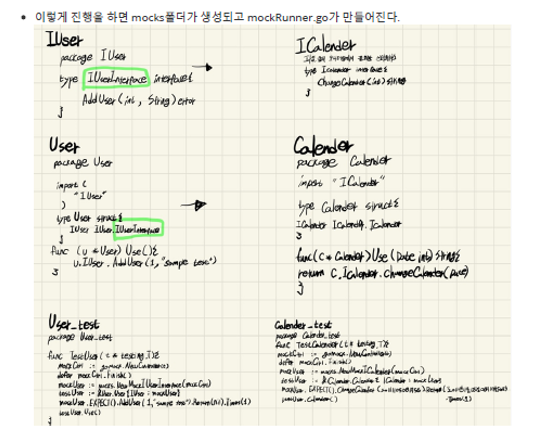 이렇게 진행을 하면 mocks폴더가 생성되고 mockRunner.go가 만들어진다.
IUser
package IUser
type IUserInterface interface{
AddUser(int, String) error
}
User
package User
import (
"IUser"
)
type User struct{
IUser IUser.IUserInterface
}
func (u *User) Use(){
u.IUser.AddUser(1,"sample test")
}
User_test
package User_test
func TestUser(t *testing.T){
mockCtrl := gomock.NewController()
defer mockCtrl.Finish()
mockUser := mocks.NewMockIUserInterface(mockCtrl)
testUser := &User.User{IUser: mockUser}
mockUser.EXPECT().AddUser(1,"sample test").Return(nil).Times(1)
testUser.Use()
ICalender
type ICalender interface{
ChangeCalender(int) string
}
Calender
package Calender
import "ICalender"
type Calender struct{
ICalender ICalender.ICalender
}
func(c *Calender)Use(Date int) string{
return C.ICalender.ChangeCalender(Date)
}
Calender_test
package Calender_test
func TestCalender(t *testing.T){
mockCtrl := gomock.NewController()
defer mockCtrl.Finish()
mockUser := mocks.NewMockICalender(mockCtrl)
testUser := &Calender.Calender{ICalender: mockUser}
mockUser.EXPECT().ChangeCalender
Times(1)